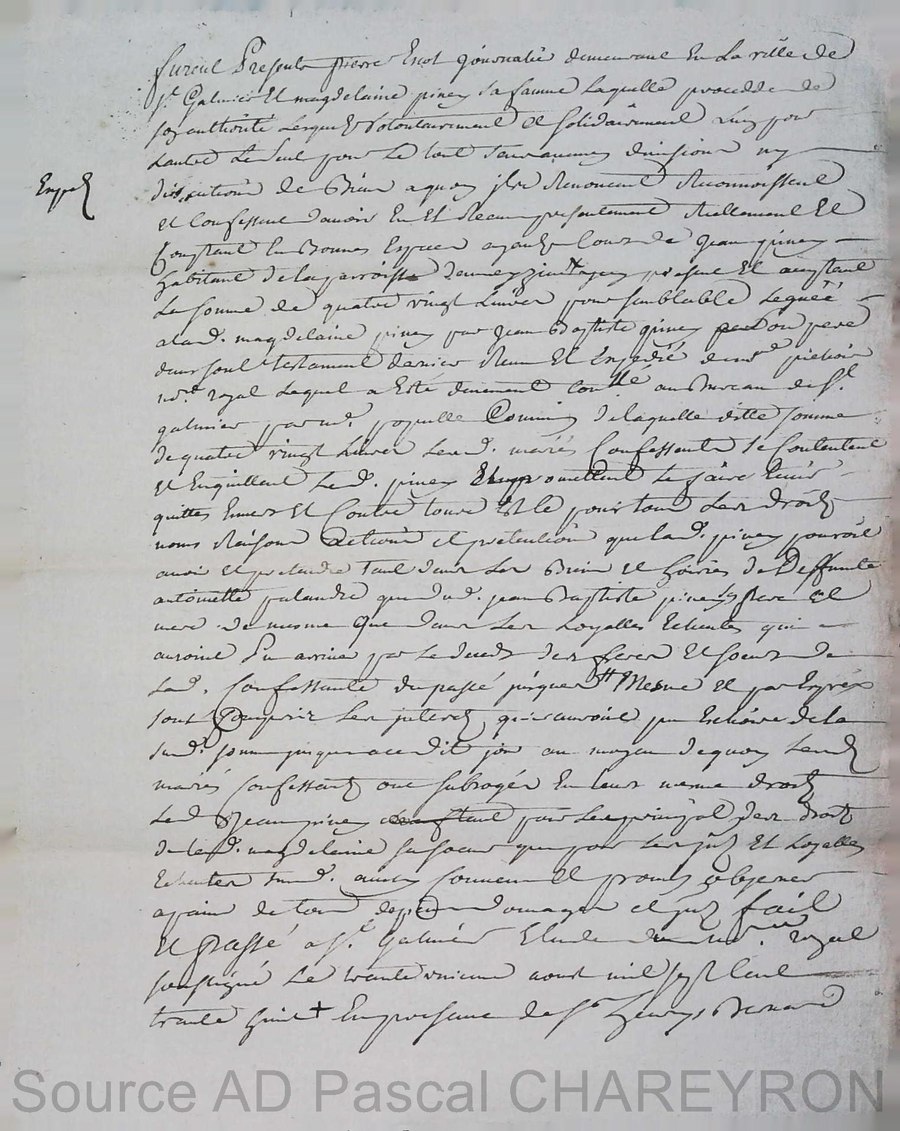 furent Presents pierre Enot Journalie demeurant En La ville de
st Galmier Et magdelaine piney sa famme Laquelle procedde de
son authorité Lesquels volontairement et solidairement L'un pour
Lautre Le seul pour Le tout sans aucunes divisions ny
Expedié
discution de Bien a quoy ils Renoncent Reconnoissent
et Confessent d'avoir Eu Et Receu presentement Reellement Et
Comptant En Bonnes Especes ayants Cours de Jean piney
habitant de la parroisse present Et acceptant
La somme de quatre vingt Livres pour semblable Leguéé
a lad. magdelaine piney par Jean Baptiste piney son pere
dans sont testament dernier Receu Et Expedié de me
nore royal Laquel a Esté deuement Conllé au Bureau de st
galmier par me. Commis de laquelle ditte somme
de quatre vingt Livres Lesd. mariés Confessants se Contentent
et En quittent Led. piney Et promettent Le faire tenir
quitte Envers Et Contre tous Et Ce pour tous Les droits
noms Raisons actions et pretentions que lad. piney pouroit
avoir Et pretendre tant dans Les Biens et hoiries de deffunte
antoinette palandre que dud. jean Baptiste piney ses pere et
mere de mesme que dans Les Loyalles Echeutes qui
auroint Pu arriver par Le deceds des freres Et soeurs de
Lad. Confessante du passé jusques Mesme Et par Exprés
sont Compris Les interets qui auroint pu Eschoire de la
susd. somme jusques a ce dit jour au moyen de quoy Lesd
mariés Confessants ont subrogés En leurs meme droits
Led Jean piney pour Le principal des droits
de lad. magdelaine sa soeur que pour Les jnts Et Loyalles
Echeutes susd. ainsy Convenu Et promis observer
a paine de tous depens domages et jnts fait
Et passé a st Galmier Etude du nore royal
soussigné Le trante unieme aout mil sept Cent
trante huit + En presence de sr Bernard
Source AD Pascal CHAREYRON